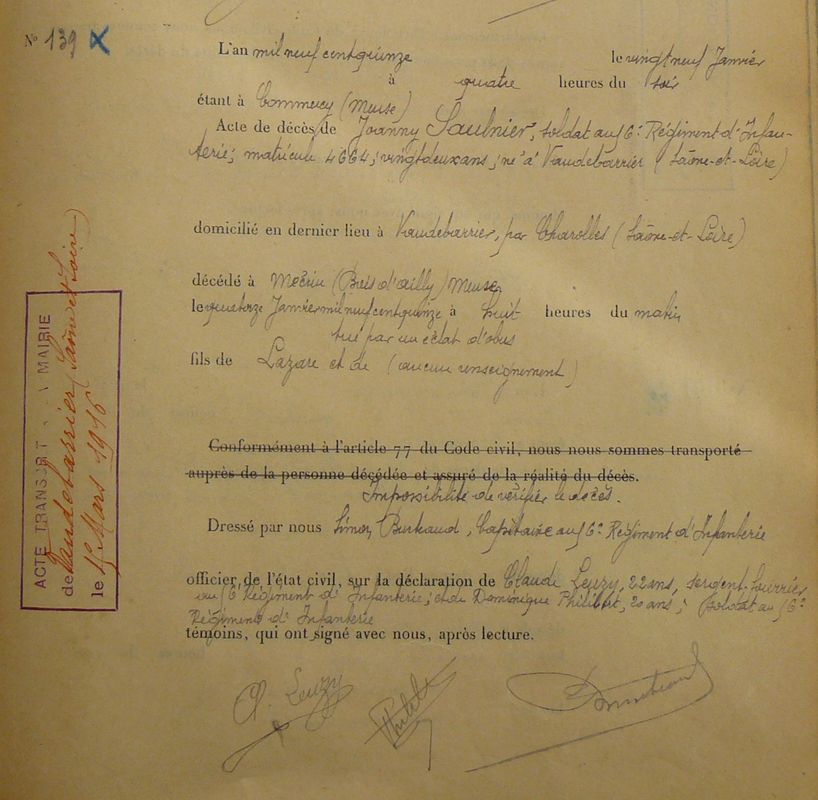 N° 139 X
L'an mil neuf cent quinze le vingt neuf Janvier
à quatre heures du soir
étant à Commercy (Meuse)
Acte de décès de Joanny Saulnier, soldat au 56° Régiment d'Infan-
terie; matricule 4664; vingt deux ans; né à Vaudebarrier (Saône-et-Loire)
domicilié en dernier lieu à Vaudebarrier, par Charolles (Saône-et-Loire)
décédé à Mécrin (Bois d'ailly) Meuse
le quatorze Janvier mil neuf cent quinze à huit heures du matin
tué par un éclat d'obus
fils de Lazare et de (aucun renseignement)
Conformément à l'article 77 du Code civil, nous nous sommes transporté
auprès de la personne décédée et assuré de la réalité du décès.
Impossibilité de vérifier le décès.
Dressé par nous Simon, Capitaine au 56° Régiment d'Infanterie
officier de l'état civil, sur la déclaration de Claude Leuzy, 22 ans, sergent-fourrier
au 56° Régiment d'Infanterie; et de Dominique Philibert, 20 ans; soldat au 56°
Régiment d'Infanterie
témoins, qui ont signé avec nous, après lecture.
Cl. Leuzy
ACTE TRANSCRIT A LA MAIRIE
de Vaudebarrier (Saône et Loire)
le 1er Mars 1916